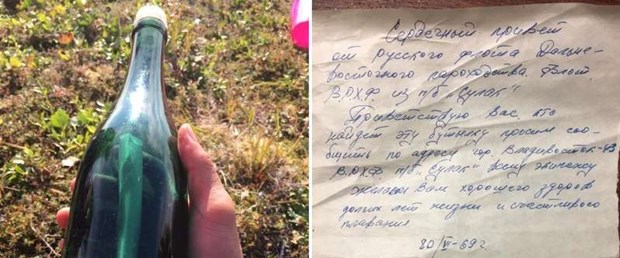 Сердечный привет
от русского флота Дальне-
восточного пароходства. Флот.
В.Р.Х.Ф из п/б "Сулак"
Приветствую Вас, кто
найдет эту бутылку просим сооб-
щить по адресу гор. Владивосток-43
В.Р.Х.Ф п/б "Сулак" всему экипажу
желаем Вам хорошего здоров
долгих лет жизни и счастливого
плавания
20/VI-69 г.